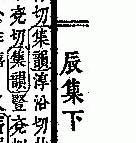 辰集下
切集韻淳沿切
兗切集韻豎兗